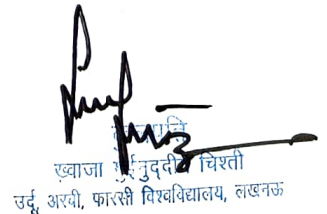 ख्वाजा मुईनुद्दीन चिश्ती
उर्दू, अरबी, फारसी विश्वविद्यालय, लखनऊ